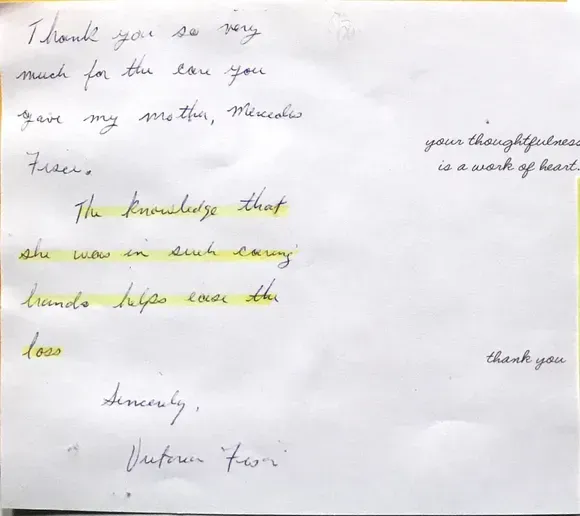 Thank you so very
much for the care you
gave my mother, Mercedes
The knowledge that
she was in such caring
hands helps ease the
loss
Sincerely,
Victoria
your thoughtfulness
is a work of heart.
thank you